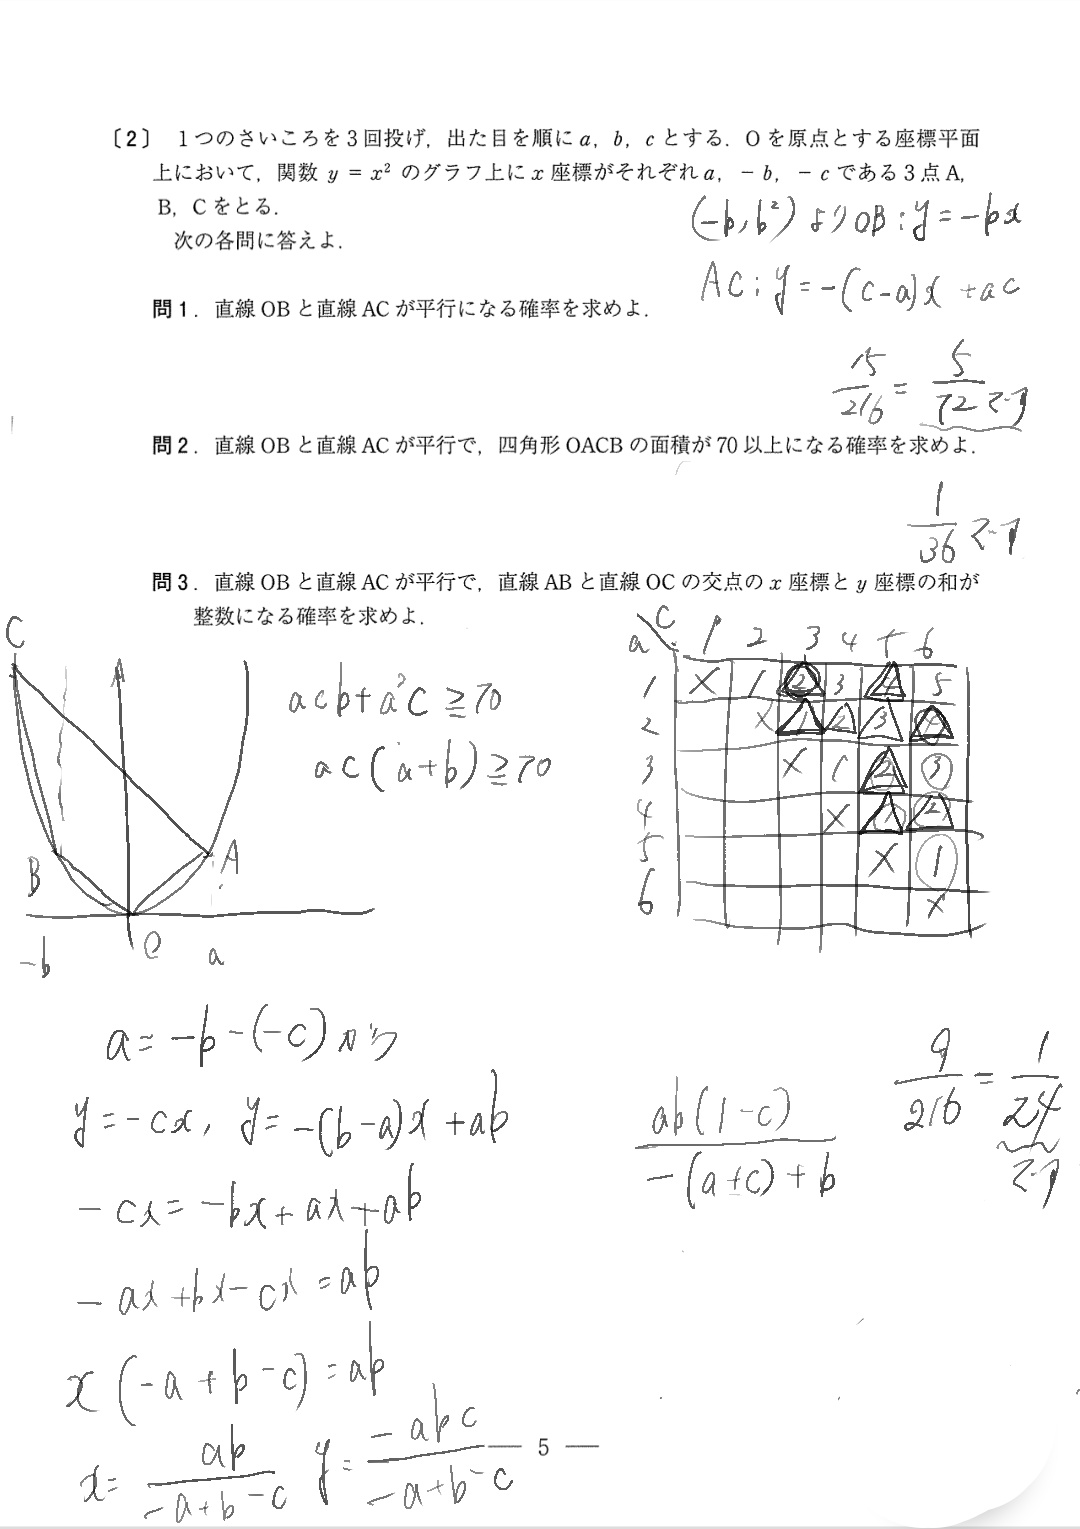 〔2〕 1つのさいころを3回投げ，出た目を順に a，b，c とする．O を原点とする座標平面
上において，関数 y = x² のグラフ上に x 座標がそれぞれ a，－b，－c である3点 A，
B，C をとる．
次の各問に答えよ．
(-b, b²) より OB : y = -bx
AC : y = -(c-a)x + ac
問1．直線 OB と直線 AC が平行になる確率を求めよ．
15/216 = 5/72
問2．直線 OB と直線 AC が平行で，四角形 OACB の面積が 70 以上になる確率を求めよ．
1/36
問3．直線 OB と直線 AC が平行で，直線 AB と直線 OC の交点の x 座標と y 座標の和が
整数になる確率を求めよ．
C A B A O -b a
acb + a²c ≧ 70
ac(a+b) ≧ 70
a c 1 2 3 4 5 6
1 × 1 2 3 4 5
2 × 1 2 3 4
3 × 1 2 3
4 × 1 2
5 × 1
6 ×
a = -b-(-c) から
y = -cx, y = -(b-a)x + ab
-cx = -bx + ax + ab
-ax + bx - cx = ab
x(-a+b-c) = ab
x = ab/(-a+b-c) y = -abc/(-a+b-c)
ab(1-c)/(-(a+c)+b)
9/216 = 1/24
— 5 —